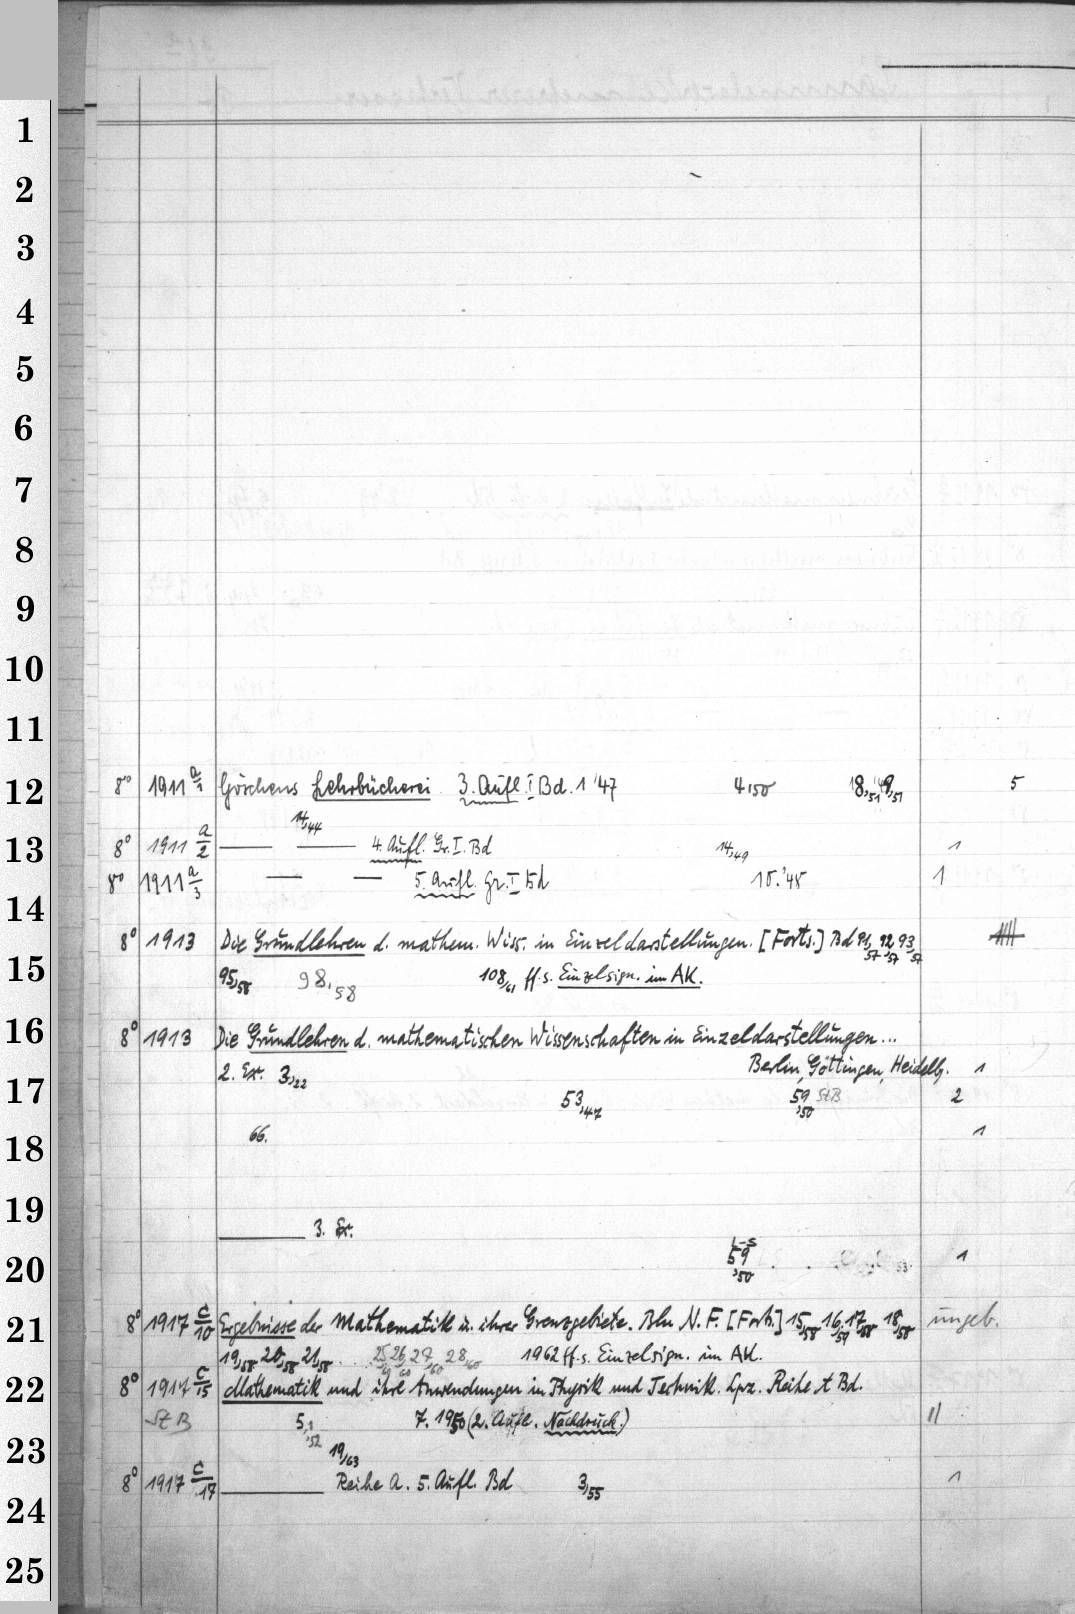 1
2
3
4
5
6
7
8
9
10
11
12 8° 1911 a/1 Göschens Lehrbücherei 3. Aufl. I Bd. 1 '47 4,50 18,51 49,51 5
14,44
13 8° 1911 a/2 4. Aufl. Gr. I. Bd 14,49 1
8° 1911 a/3 5. Aufl. Gr. I Bd 10.'48 1
14
8° 1913 Die Grundlehren d. mathem. Wiss. in Einzeldarstellungen. [Forts.] Bd 91,57 92,57 93,57
15 95,58 98,58 108,61 ff. s. Einzelsign. im AK.
16 8° 1913 Die Grundlehren d. mathematischen Wissenschaften in Einzeldarstellungen...
2. Ex. 3,22 Berlin, Göttingen, Heidelbg. 1
17 53,47 59,50 StB 2
18 66. 1
19 3. Ex.
L-S
20 59,50 1
21 8° 1917 c/10 Ergebnisse der Mathematik u. ihrer Grenzgebiete. Bln N. F. [Forts.] 15,58 16,59 17,58 18,58 ungeb.
19,58 20,58 21,58 25 26,60 27,60 28,60 1962 ff. s. Einzelsign. im AK.
22 8° 1917 c/15 Mathematik und ihre Anwendungen in Physik und Technik. Lpz. Reihe A Bd.
St B 5,52 7. 1950 (2. Aufl. Nachdruck.) II
23 19/63
8° 1917 c/17 Reihe A. 5. Aufl. Bd 3,55 1
24
25